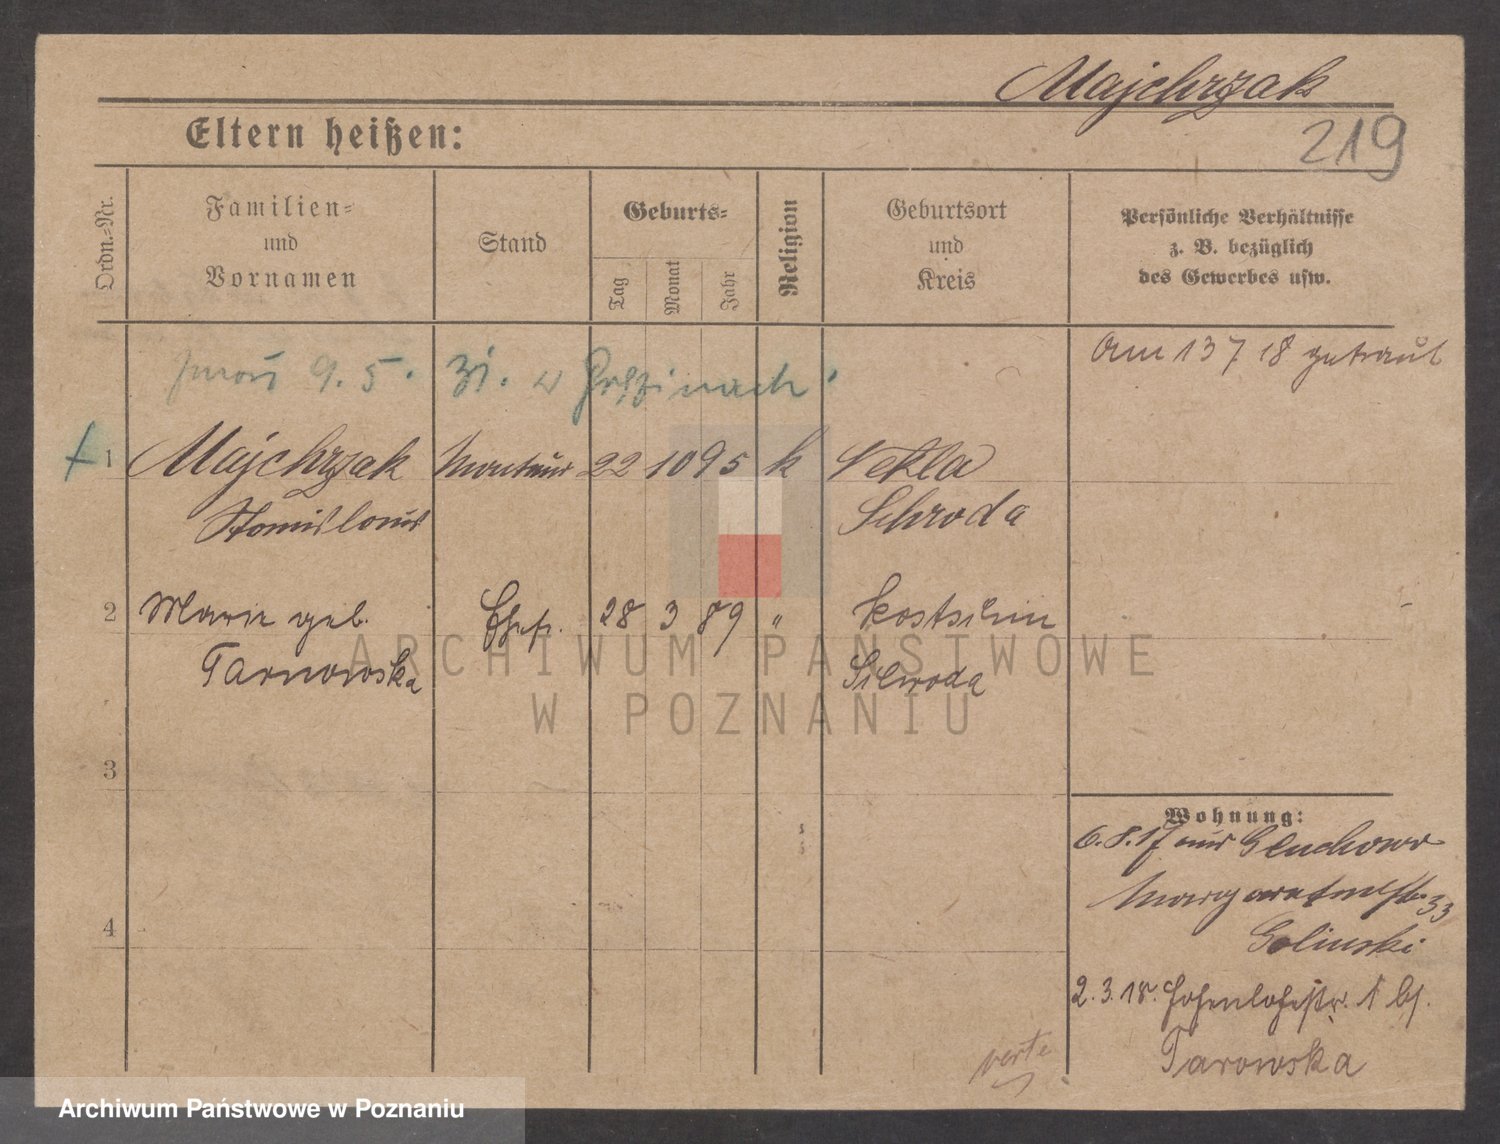 Majchrzak
219
Eltern heißen:
Ordn.-Nr.
Familien-
und
Vornamen
Stand
Geburts-
Tag
Monat
Jahr
Religion
Geburtsort
und
Kreis
Persönliche Verhältnisse
z. B. bezüglich
des Gewerbes usw.
am 13 7 18 getraut
9. 5. 31. w
1 Majchrzak Monteur 22 10 95 k Nekla
Stanislaus Schroda
2 Marie geb. Ehefr. 28 3 89 " Kostschin
Tarnowska Schroda
3
4
Wohnung:
6. 8. 17 aus Gluchowo
Margaretenstr. 33
Golinski
2. 3. 18. Hohenlohestr. 1 bei
Tarowska
verte
ARCHIWUM PAŃSTWOWE
W POZNANIU
Archiwum Państwowe w Poznaniu